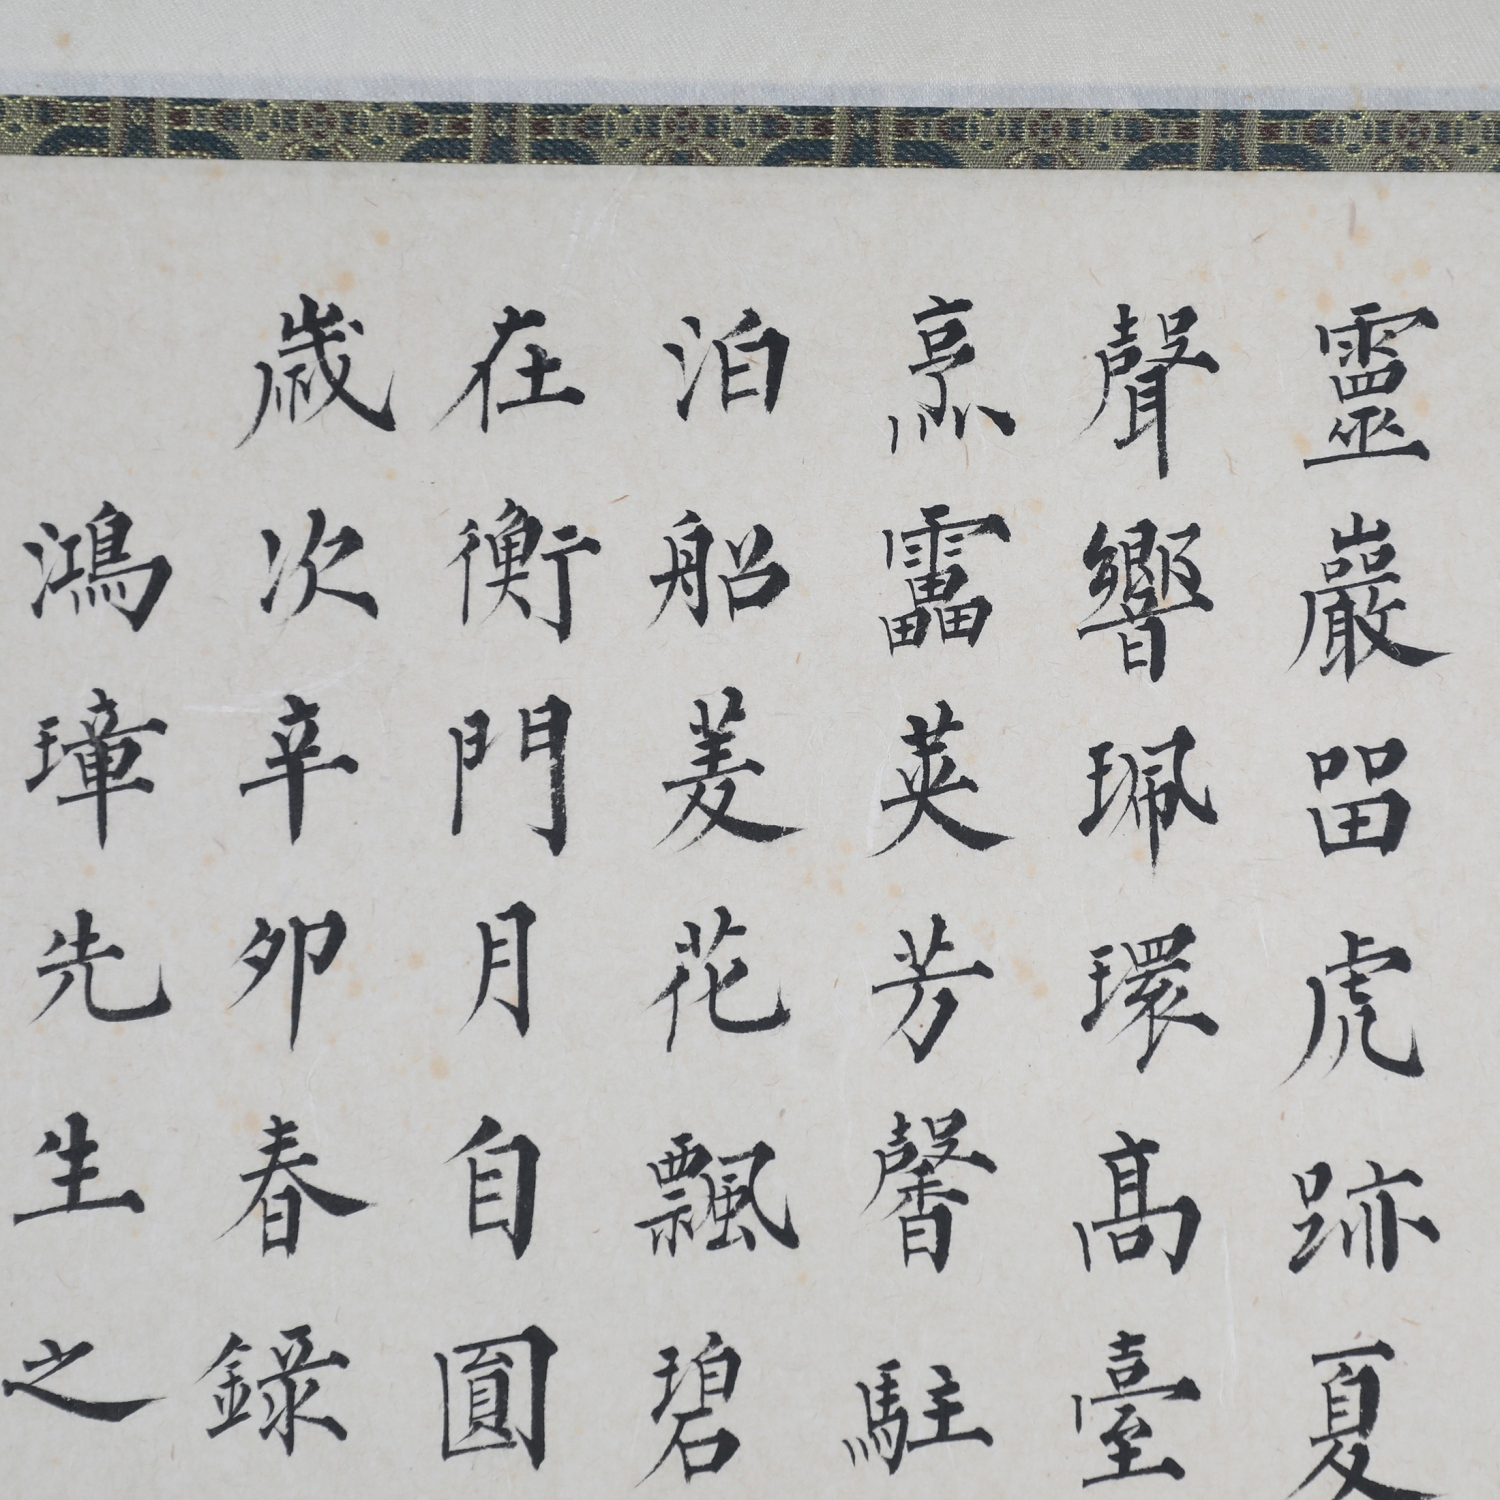 靈巖畱虎跡夏
聲響珮環高臺
烹靁莢芳馨駐
泊船菱花飄碧
在衡門月自圓
歲次辛卯春錄
鴻璋先生之